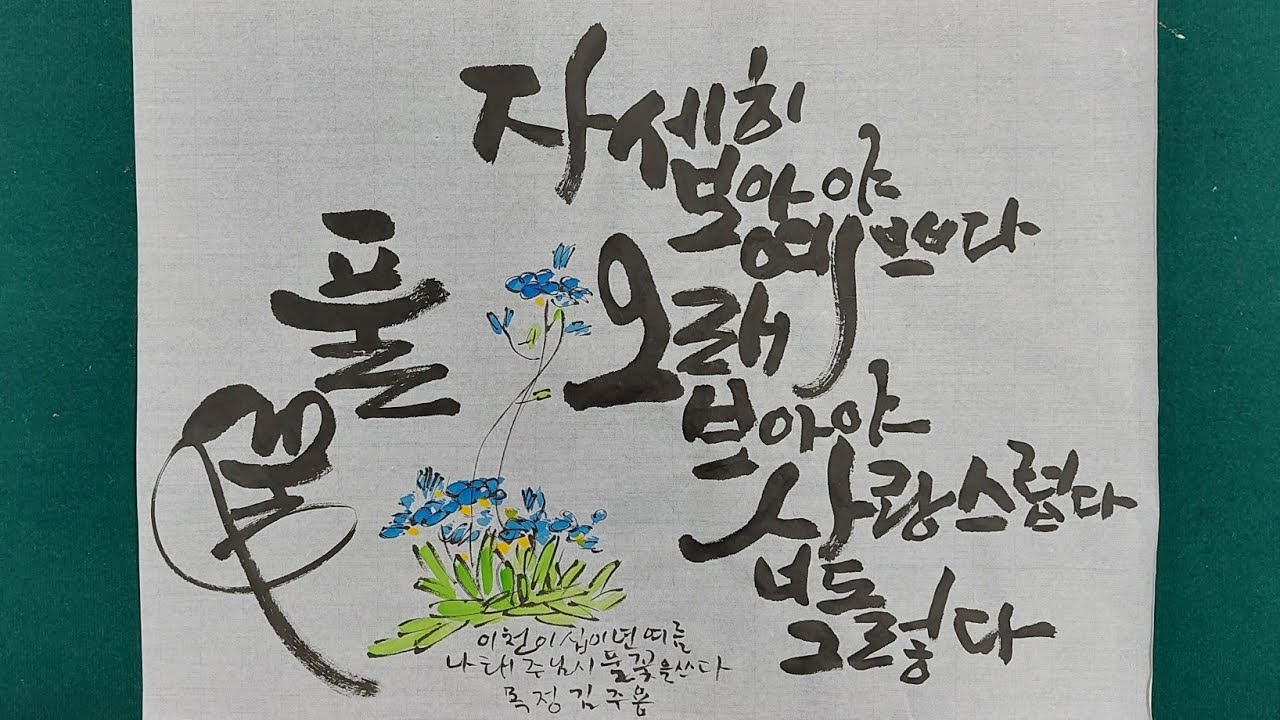 풀
꽃
자세히
보아야
예쁘다
오래
보아야
사랑스럽다
너도
그렇다
이천이십이년 여름
나태주님시 풀꽃을쓰다
목정 김주용